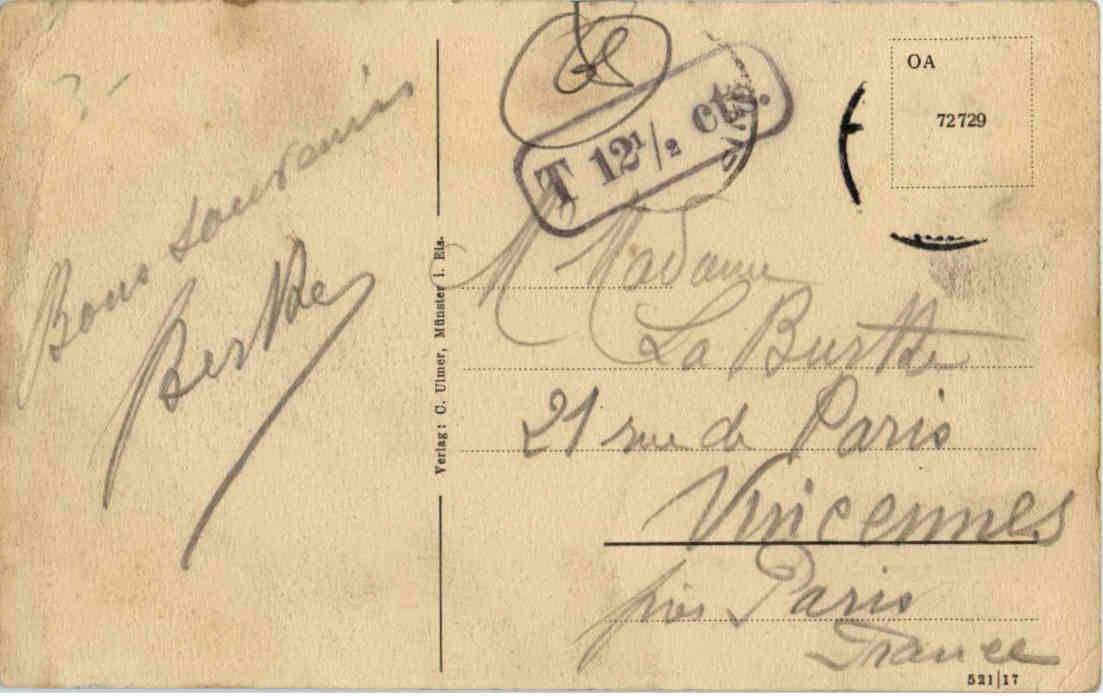 Bons souvenirs
Berthe
Verlag: C. Ulmer, Münster i. Els.
T 12½ cts.
OA
72729
M Madame
La Burthe
21 rue de Paris
Vincennes
près Paris
France
521|17